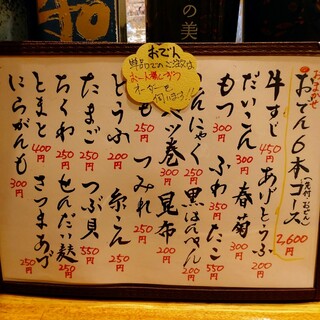 の美
おでん
単品でのご注文は
お一人様一つずつ
オーダーを
伺います!!
おまかせ
おでん6本コース
(先付 おでん)
2,600円
牛すじ 450円 あげとうふ 200円
だいこん 300円 春菊 300円
もつ 300円 ふわ 350円 たこ 550円
んにゃく 黒はんぺん 200円
巻 昆布 200円
も 250円 つみれ 250円
とうふ 200円 糸こん
たまご つぶ貝 550円
ちくわ 250円 せんだい麩 250円
とまと 400円 さつまあげ 250円
にらがんも 300円